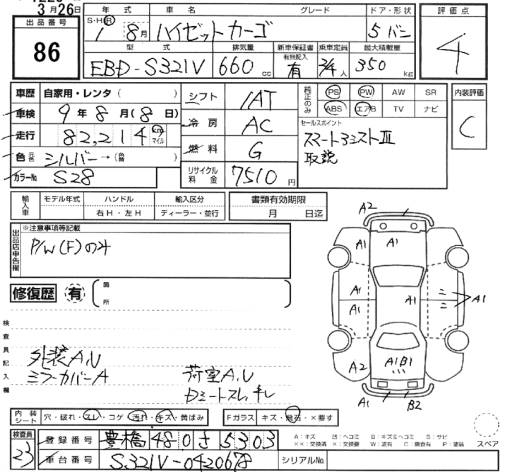 3月26日
出品番号
86
年式 車名 グレード ドア・形状
S・H・R 1 8月 ハイゼットカーゴ 5 バン
型式 排気量 新車保証書 乗車定員 最大積載量
EBD-S321V 660 cc 有 2/4人 350 kg
評価点
4
車歴 自家用・レンタ( )
車検 9年8月(8日)
走行 82,214 Km マイル
色 元色 シルバー→( 替 )
カラーNo S28
シフト IAT
冷房 AC
燃料 G
リサイクル料金 7510円
純正のみ
PS PW AW SR
ABS エアB TV ナビ
セールスポイント
スマートアシストⅢ
取説
内装評価
C
輸入車
モデル年式 ハンドル 輸入区分
右H・左H ディーラー・並行
書類有効期限
月 日迄
出品店申告欄
※注意事項等記載
P/W(F)のみ
修復歴 有 箇所
検査員記入欄
外装A,U
ミラーカバーA
荷室A,U
A2
A1 A1 A1
A1 A1 A1
A1B1
A1 B2
内装シート 穴・破れ・スレ・コゲ・汚れ・キズ・黄ばみ
Fガラス キズ・飛石・×要す
A:キズ U:ヘコミ B:キズとヘコミ S:サビ
スペア
検査員
23
登録番号 豊橋 480 さ 5303
車台番号 S321V-0420678
シリアルNo